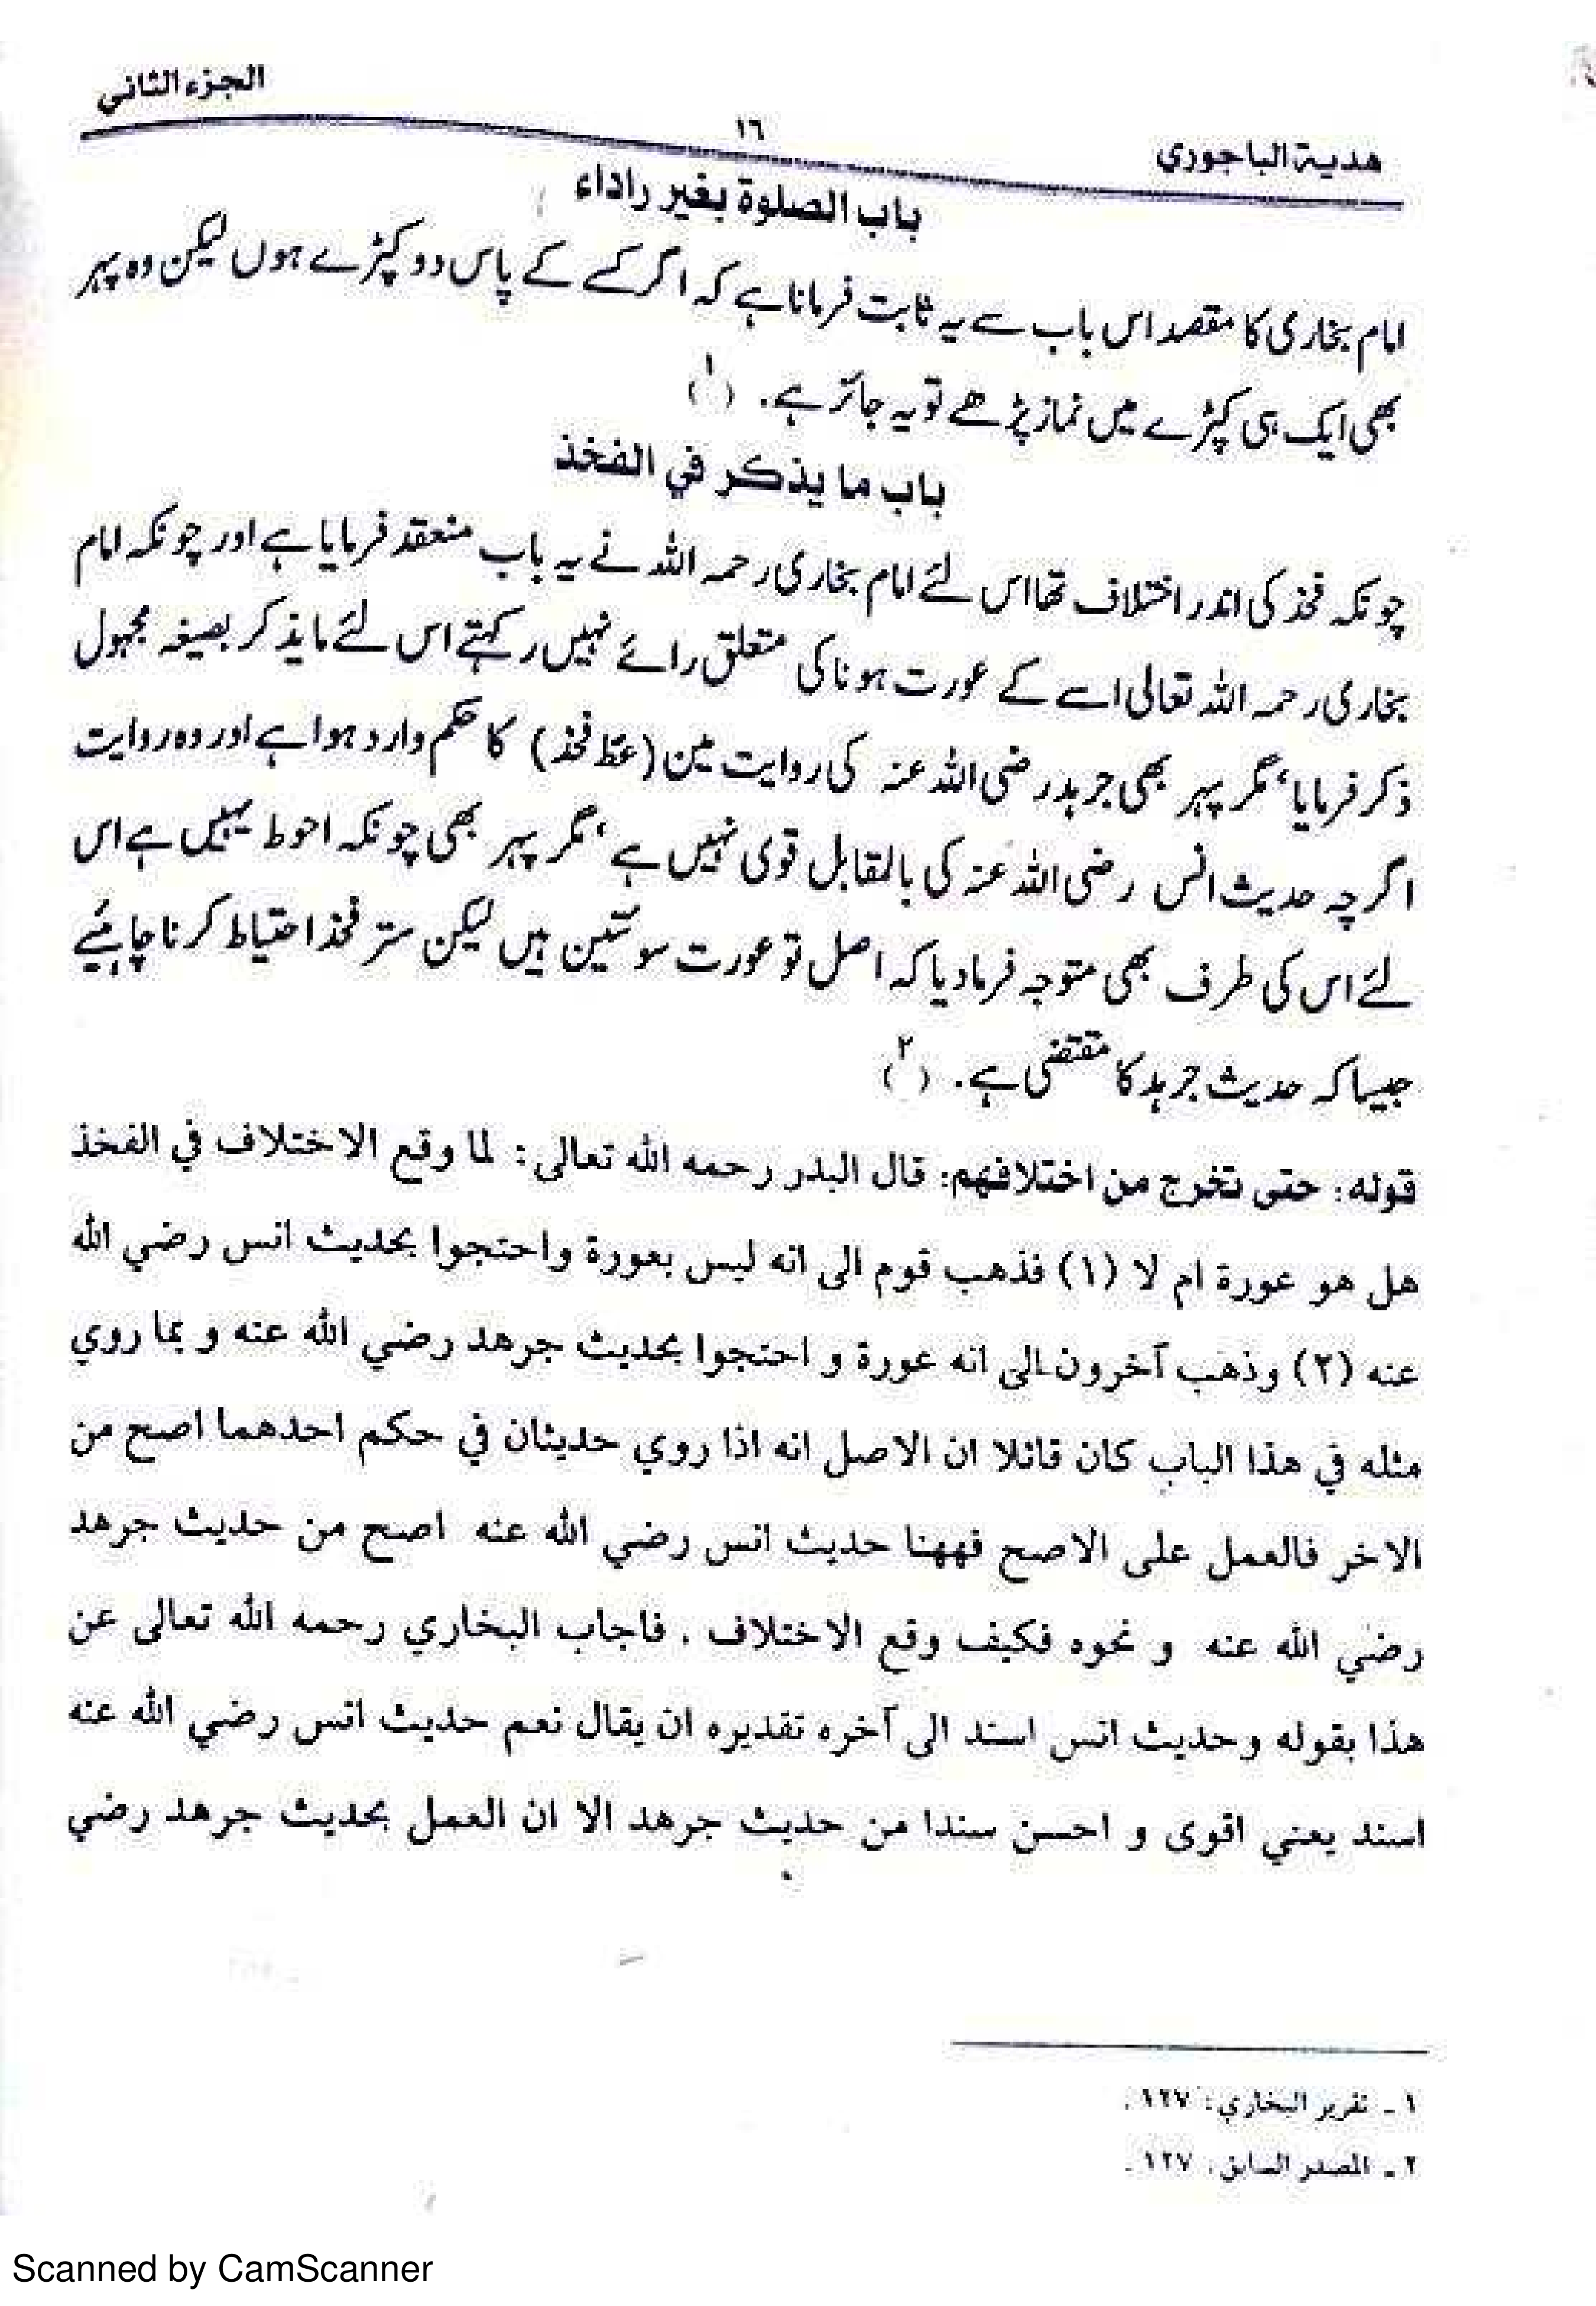 الجزء الثاني
١٦
هدية الباجوري
باب الصلوة بغير راداء
امام بخاری کا مقصد اس باب سے یہ ثابت فرمانا ہے کہ اگر کسے کے پاس دو کپڑے ہوں لیکن وہ پہر
بھی ایک ہی کپڑے میں نماز پڑھے تو یہ جائز ہے. (١)
باب ما يذكر في الفخذ
چونکہ فخذ کی اندر اختلاف تھا اس لئے امام بخاری رحمہ اللہ نے یہ باب منعقد فرمایا ہے اور چونکہ امام
بخاری رحمہ اللہ تعالی اسے کے عورت ہونا کی متعلق رائے نہیں رکہتے اس لئے ما یذکر بصیغہ مجہول
ذکر فرمایا، مگر پہر بھی جرہد رضی اللہ عنہ کی روایت مین (غط فخذ) کا حکم وارد ہوا ہے اور وہ روایت
اگر چہ حدیث انس رضی اللہ عنہ کی بالمقابل قوی نہیں ہے، مگر پہر بھی چونکہ احوط یہیں ہے اس
لئے اس کی طرف بھی متوجہ فرمادیا کہ اصل تو عورت سوئتین ہیں لیکن ستر فخذ احتیاط کرنا چاہئیے
جیسا کہ حدیث جرہد کا مقتضی ہے. (٢)
قوله: حتى تخرج من اختلافهم: قال البدر رحمه الله تعالى: لما وقع الاختلاف في الفخذ
هل هو عورة ام لا (١) فذهب قوم الى انه ليس بعورة واحتجوا بحديث انس رضي الله
عنه (٢) وذهب آخرون الى انه عورة و احتجوا بحديث جرهد رضي الله عنه و بما روي
مثله في هذا الباب كان قائلا ان الاصل انه اذا روي حديثان في حكم احدهما اصح من
الاخر فالعمل على الاصح فههنا حديث انس رضي الله عنه اصح من حديث جرهد
رضي الله عنه و نحوه فكيف وقع الاختلاف . فاجاب البخاري رحمه الله تعالى عن
هذا بقوله وحديث انس اسند الى آخره تقديره ان يقال نعم حديث انس رضي الله عنه
اسند يعني اقوى و احسن سندا من حديث جرهد الا ان العمل بحديث جرهد رضي
١ ـ تقرير البخاري: ١٢٧ .
٢ ـ المصدر السابق. ١٢٧ .
Scanned by CamScanner